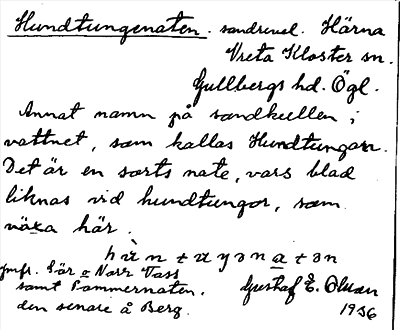 Hundtungenaten. sandrevel. Härna
Vreta Kloster sn.
Gullbergs hd. Ögl.
Annat namn på sandkullen i
vattnet, som kallas Hundtungorn.
Det är en sorts nate, vars blad
liknas vid hundtungor, som
växa här.
jmfr. Sör o Norr Vass
samt Pommernaten.
den senare å Berg.
Gustaf E. Olsson
1936